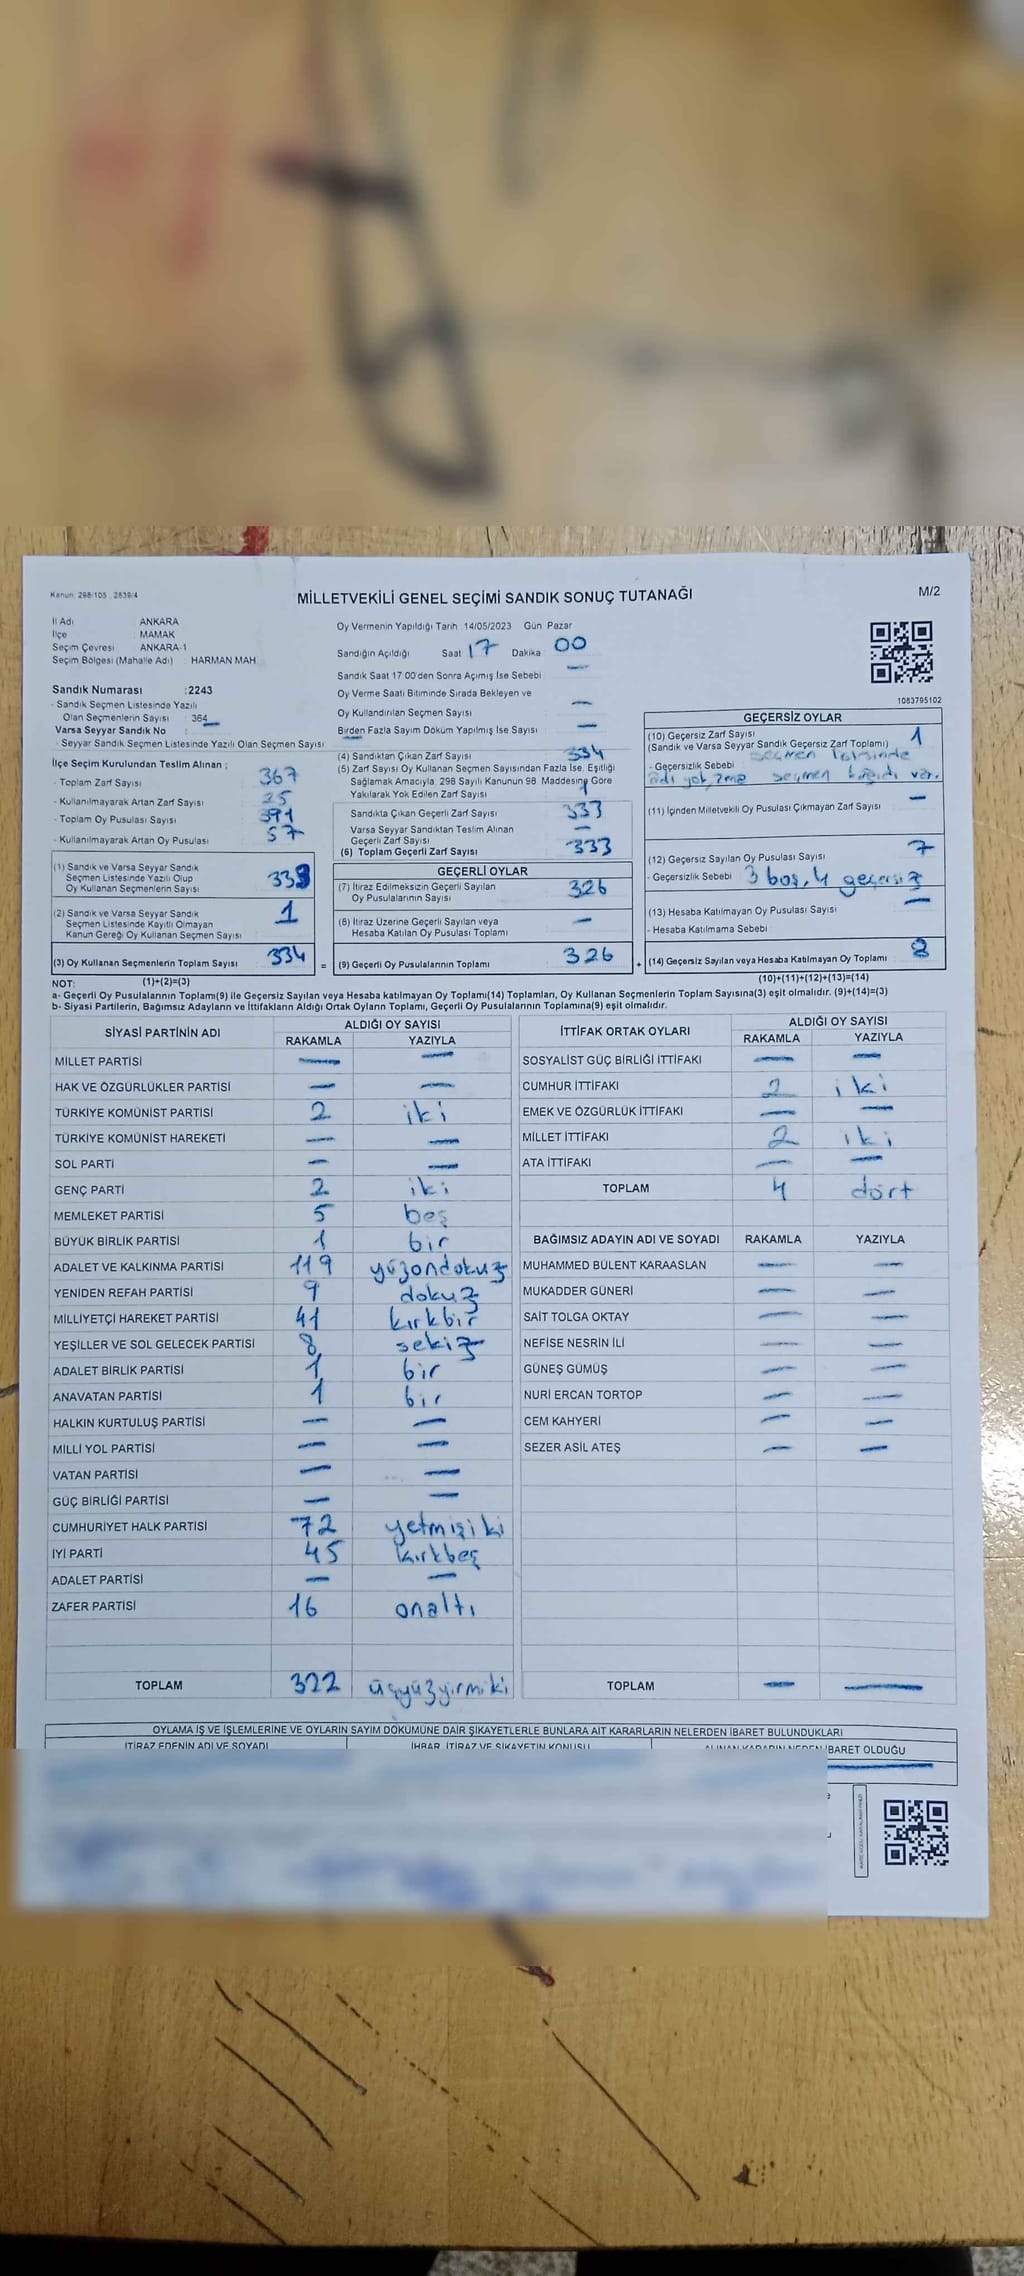 Kanun: 298/105 . 2839/4
MİLLETVEKİLİ GENEL SEÇİMİ SANDIK SONUÇ TUTANAĞI
M/2
İl Adı : ANKARA
İlçe : MAMAK
Seçim Çevresi : ANKARA-1
Seçim Bölgesi (Mahalle Adı) : HARMAN MAH
Sandık Numarası :2243
- Sandık Seçmen Listesinde Yazılı
Olan Seçmenlerin Sayısı : 364
Varsa Seyyar Sandık No :
- Seyyar Sandık Seçmen Listesinde Yazılı Olan Seçmen Sayısı
İlçe Seçim Kurulundan Teslim Alınan ;
- Toplam Zarf Sayısı 367
- Kullanılmayarak Artan Zarf Sayısı 25
- Toplam Oy Pusulası Sayısı 391
- Kullanılmayarak Artan Oy Pusulası 57
(1) Sandık ve Varsa Seyyar Sandık
Seçmen Listesinde Yazılı Olup
Oy Kullanan Seçmenlerin Sayısı 333
(2) Sandık ve Varsa Seyyar Sandık
Seçmen Listesinde Kayıtlı Olmayan
Kanun Gereği Oy Kullanan Seçmen Sayısı 1
(3) Oy Kullanan Seçmenlerin Toplam Sayısı 334 =
(1)+(2)=(3)
Oy Vermenin Yapıldığı Tarih 14/05/2023 Gün Pazar
Sandığın Açıldığı Saat 17 Dakika 00
Sandık Saat 17:00'den Sonra Açımış İse Sebebi —
Oy Verme Saati Bitiminde Sırada Bekleyen ve
Oy Kullandırılan Seçmen Sayısı —
Birden Fazla Sayım Döküm Yapılmış İse Sayısı —
(4) Sandıktan Çıkan Zarf Sayısı 334
(5) Zarf Sayısı Oy Kullanan Seçmen Sayısından Fazla İse, Eşitliği
Sağlamak Amacıyla, 298 Sayılı Kanunun 98. Maddesine Göre
Yakılarak Yok Edilen Zarf Sayısı 1
Sandıkta Çıkan Geçerli Zarf Sayısı 333
Varsa Seyyar Sandıktan Teslim Alınan
Geçerli Zarf Sayısı —
(6) Toplam Geçerli Zarf Sayısı 333
GEÇERLİ OYLAR
(7) İtiraz Edilmeksizin Geçerli Sayılan
Oy Pusulalarının Sayısı 326
(8) İtiraz Üzerine Geçerli Sayılan veya
Hesaba Katılan Oy Pusulası Toplamı —
(9) Geçerli Oy Pusulalarının Toplamı 326 +
1083795102
GEÇERSİZ OYLAR
(10) Geçersiz Zarf Sayısı 1
(Sandık ve Varsa Seyyar Sandık Geçersiz Zarf Toplamı)
- Geçersizlik Sebebi seçmen listesinde
adı yok, ama seçmen kağıdı var.
(11) İçinden Milletvekili Oy Pusulası Çıkmayan Zarf Sayısı —
(12) Geçersiz Sayılan Oy Pusulası Sayısı 7
- Geçersizlik Sebebi 3 boş, 4 geçersiz
(13) Hesaba Katılmayan Oy Pusulası Sayısı —
- Hesaba Katılmama Sebebi
(14) Geçersiz Sayılan veya Hesaba Katılmayan Oy Toplamı 8
(10)+(11)+(12)+(13)=(14)
NOT:
a- Geçerli Oy Pusulalarının Toplamı(9) ile Geçersiz Sayılan veya Hesaba katılmayan Oy Toplamı(14) Toplamları, Oy Kullanan Seçmenlerin Toplam Sayısına(3) eşit olmalıdır. (9)+(14)=(3)
b- Siyasi Partilerin, Bağımsız Adayların ve İttifakların Aldığı Ortak Oyların Toplamı, Geçerli Oy Pusulalarının Toplamına(9) eşit olmalıdır.
SİYASİ PARTİNİN ADI ALDIĞI OY SAYISI
RAKAMLA YAZIYLA
MİLLET PARTİSİ — —
HAK VE ÖZGÜRLÜKLER PARTİSİ — —
TÜRKİYE KOMÜNİST PARTİSİ 2 iki
TÜRKİYE KOMÜNİST HAREKETİ — —
SOL PARTİ — —
GENÇ PARTİ 2 iki
MEMLEKET PARTİSİ 5 beş
BÜYÜK BİRLİK PARTİSİ 1 bir
ADALET VE KALKINMA PARTİSİ 119 yüzondokuz
YENİDEN REFAH PARTİSİ 9 dokuz
MİLLİYETÇİ HAREKET PARTİSİ 41 kırkbir
YEŞİLLER VE SOL GELECEK PARTİSİ 8 sekiz
ADALET BİRLİK PARTİSİ 1 bir
ANAVATAN PARTİSİ 1 bir
HALKIN KURTULUŞ PARTİSİ — —
MİLLİ YOL PARTİSİ — —
VATAN PARTİSİ — —
GÜÇ BİRLİĞİ PARTİSİ — —
CUMHURİYET HALK PARTİSİ 72 yetmişiki
İYİ PARTİ 45 kırkbeş
ADALET PARTİSİ — —
ZAFER PARTİSİ 16 onaltı
TOPLAM 322 üçyüzyirmiki
İTTİFAK ORTAK OYLARI ALDIĞI OY SAYISI
RAKAMLA YAZIYLA
SOSYALİST GÜÇ BİRLİĞİ İTTİFAKI — —
CUMHUR İTTİFAKI 2 iki
EMEK VE ÖZGÜRLÜK İTTİFAKI — —
MİLLET İTTİFAKI 2 iki
ATA İTTİFAKI — —
TOPLAM 4 dört
BAĞIMSIZ ADAYIN ADI VE SOYADI RAKAMLA YAZIYLA
MUHAMMED BÜLENT KARAASLAN — —
MUKADDER GÜNERİ — —
SAİT TOLGA OKTAY — —
NEFİSE NESRİN İLİ — —
GÜNEŞ GÜMÜŞ — —
NURİ ERCAN TORTOP — —
CEM KAHYERİ — —
SEZER ASİL ATEŞ — —
TOPLAM — —
OYLAMA İŞ VE İŞLEMLERİNE VE OYLARIN SAYIM DÖKÜMÜNE DAİR ŞİKAYETLERLE BUNLARA AİT KARARLARIN NELERDEN İBARET BULUNDUKLARI
İTİRAZ EDENİN ADI VE SOYADI İHBAR, İTİRAZ VE ŞİKAYETİN KONUSU ALINAN KARARIN NEDEN İBARET OLDUĞU